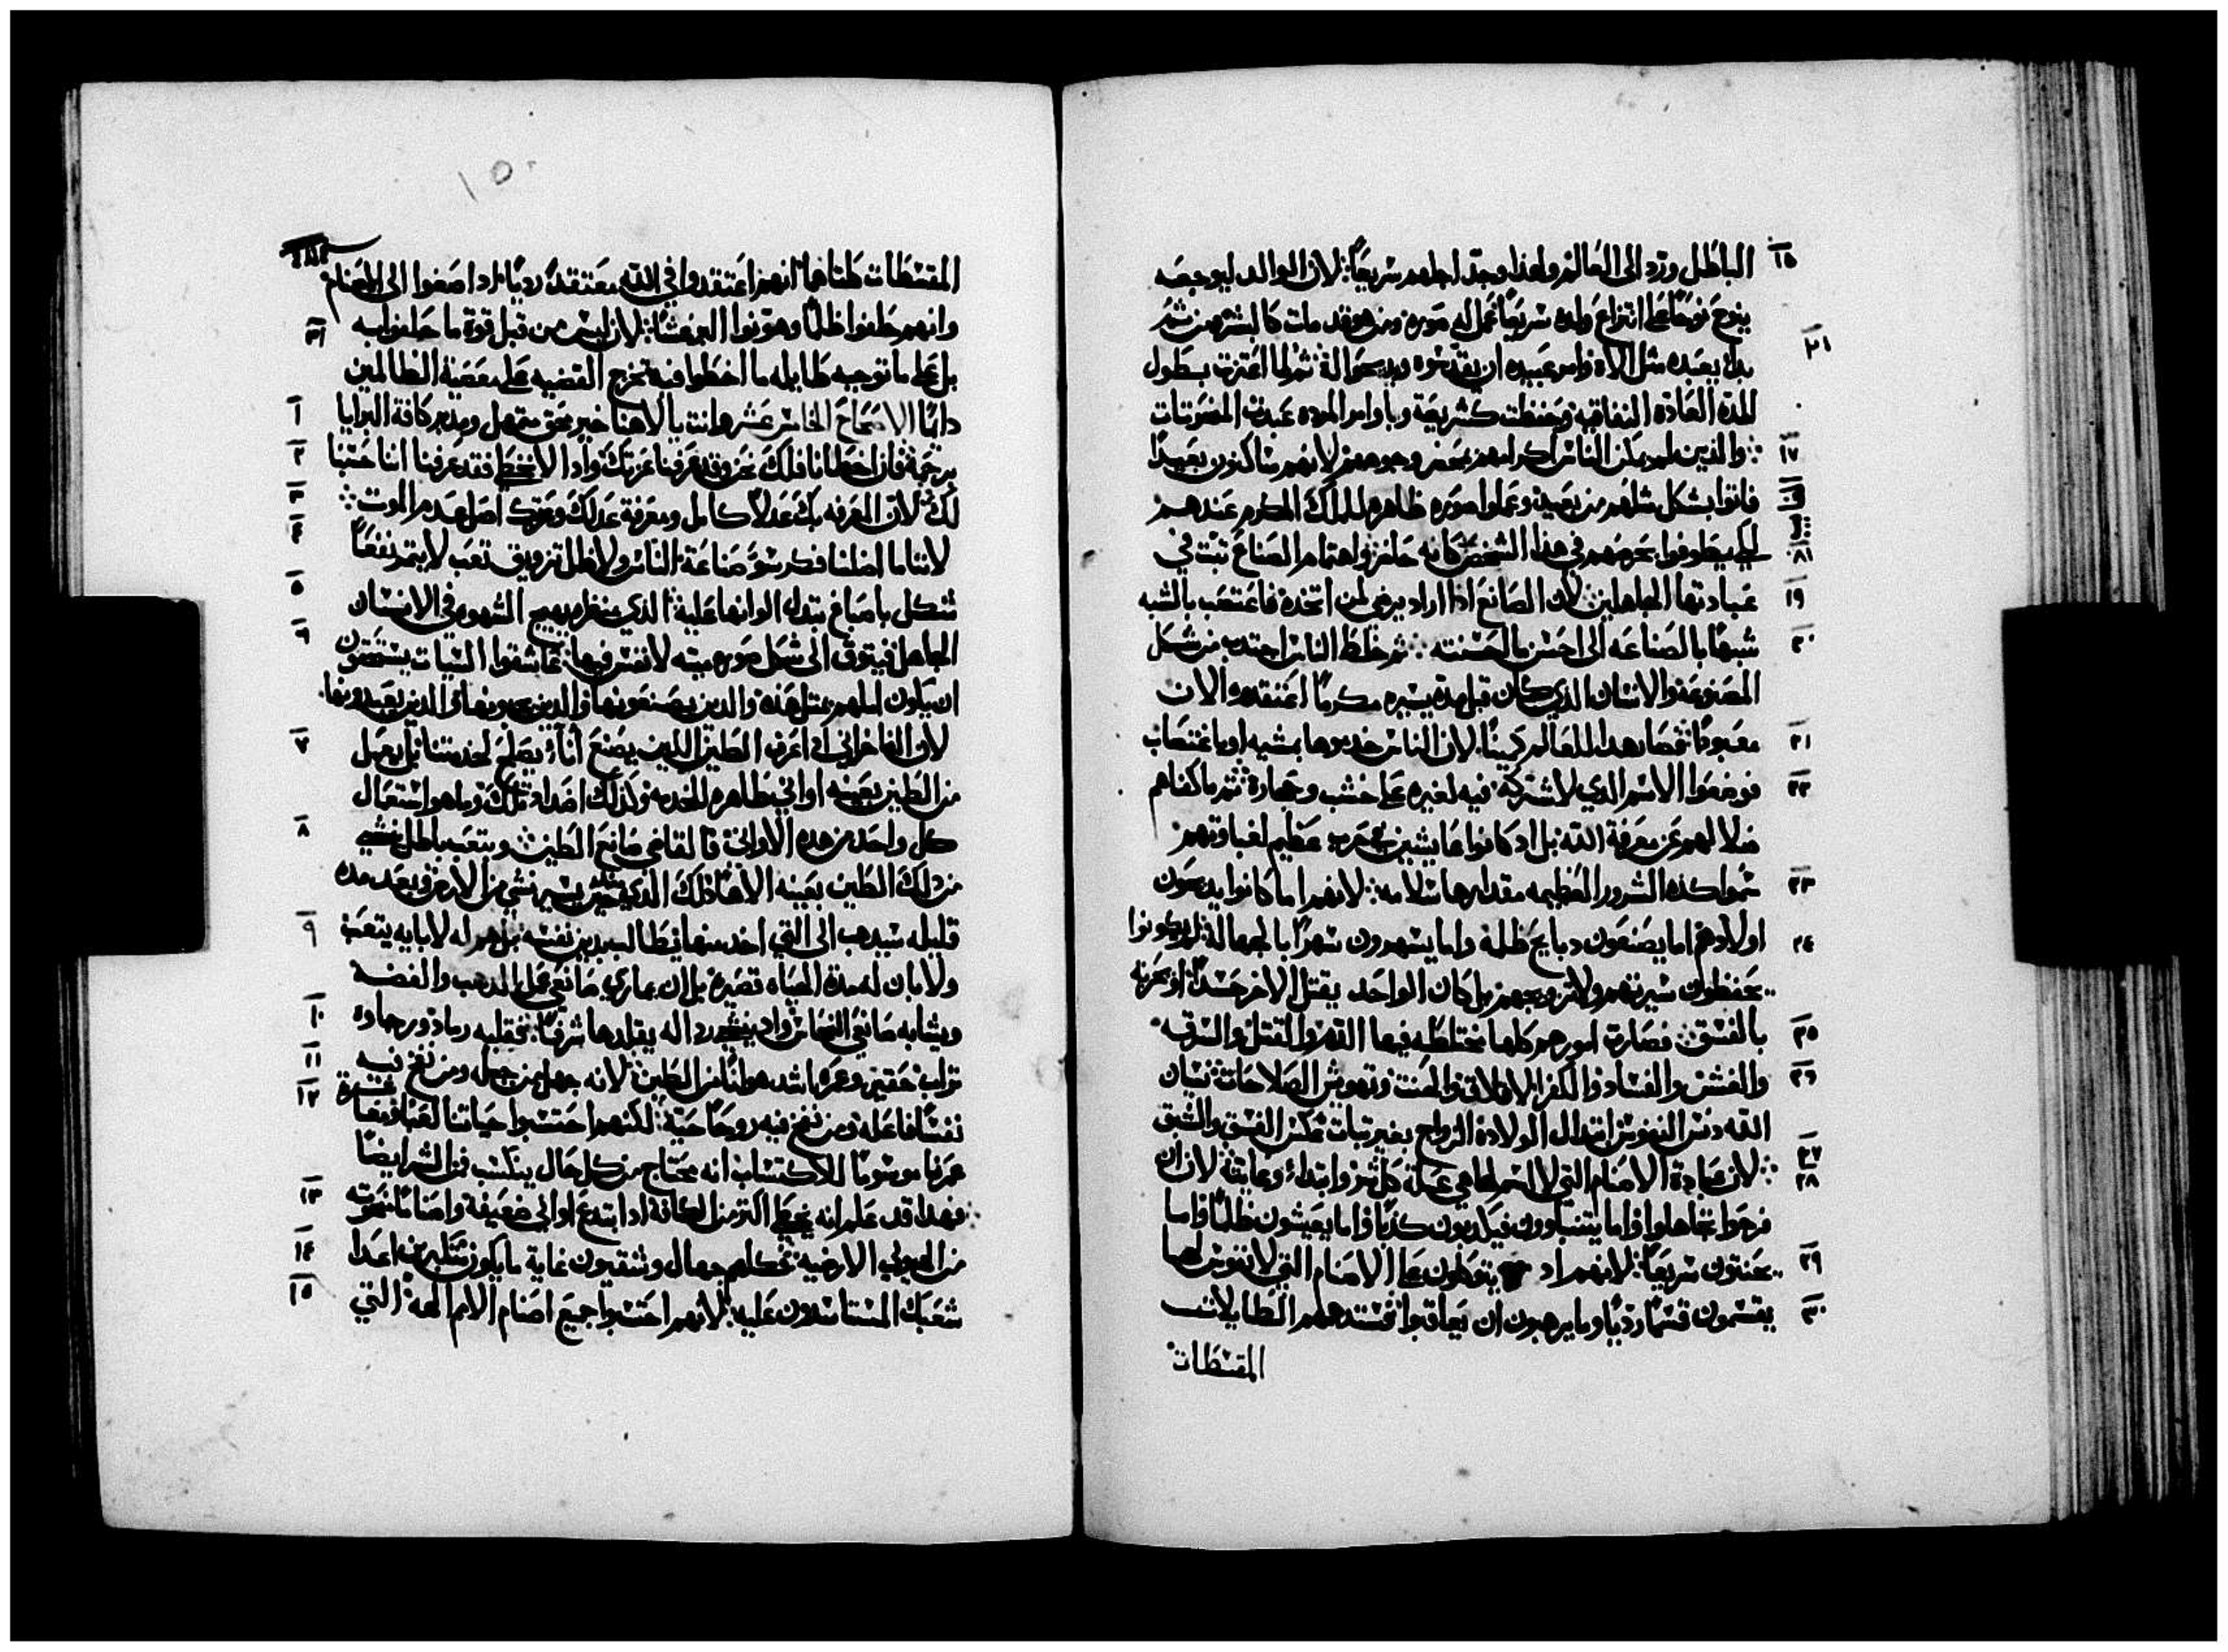 ١٥ الباطل ورد الى العالم ولهذا وجد اجلهم سريعًا لان الوالد ليوجعه
ينوح نوحًا على انتزاع ولده سريعًا عمل له صوره ومن هو قد مات كالبشر من ثم
١٦ بدا يعبده مثل الاه وامر عبيده ان يقدموه ويدبحوا له ثم لما اعتزت بطول
المده العاده النفاقيه وحفظت كشريعة وباوامر المرده عبدت المنحوتات
١٧ والذين لم يمكن الناس اكرامهم بمحضر وجوههم لانهم ساكنون بعيدًا
فاتوا بشكل شكلهم من بعيد وعملوا صوره ظاهره للملك المكرم عندهم
١٨ لكي يطوفوا بحرصهم في هذا الشخص كانه حاضر واهتمام الصناع تبت في
١٩ عبادتها الجاهلين لان الصانع اذا اراد يرضي لمن اتخده فاعتصب بالشبه
٢٠ شبهًا بالصناعه الى احسن ما لحسنته ثم خلط الناس اجتدبه من شكل
المصنوعه والانسان الذي كان قبل مده يسيره مكرمًا اعتقدوه الان
٢١ معبودًا فصار هدا للعالم كمينًا لان الناس خدموها بمشيه او باغتصاب
٢٢ فوضعوا الاسم الدي لا شركة فيه لغيره على خشب وحجارة ثم ما كفاهم
ضلالهم عن معرفة الله بل اد كانوا عايشين بحرب عظيم لغباوتهم
٢٣ سموا كده الشرور العظيمه مقدارها سلامه لانهم اما كانوا يدبحون
٢٤ اولادهم اما يصنعون دبايح ظلمة واما يسهرون سهرًا بالجهالة لم يكونوا
يحفظون سيرتهم ولا تزويجهم بل كان الواحد يقتل الاخر حسدًا او يحزنه
٢٥ بالفسق فصارت امورهم كلها مختلطه فيها الدم والقتل والسرقه
٢٦ والغش والفساد والكفر الاقلاق والحنت وتهويش الصلاحات نسيان
الله دنس النفوس ابتدال الولادة الزواج بغير تبات تمكن الفسق والشبق
٢٧ لان عبادة الاصنام التي لا اسم لها هي علة كل شر وابتداء وغاية
٢٨ لان ان فرحوا تجاهلوا واما يتنباوون فيكدبون كذبًا واما يعيشون ظلمًا واما
٢٩ يحنتون سريعًا لانهم اد يتوكلون على الاصنام التي لا نفوس لها
٣٠ يقسمون قسمًا رديًا وما يرهبون ان يعاقبوا فستدهمهم الطايلات
المقسطات
١٥٠
المقسطات كلتاهما انهم اعتقدوا في الله معتقدًا رديًا اد اصغوا الى الاصنام
٣١ وانهم حلفوا ظلمًا وهونوا البر غشًا لان ليس من قبل قوة ما حلفوا به
بل على ما توجبه طايله ما اخطوا فيه تخرج القضيه على معصية الظالمين
١ دايمًا الاصحاح الخامس عشر وانت يا الاهنا خير محق متمهل ومدبر كافة البرايا
٢ برحمة فان اخطانا فلك نحن وقد عرفنا عزتك واذا لا نخطي فقد عرفنا اننا حسبنا
٣ لك لان المعرفه بك عدلًا كامل ومعرفة عدلك وعزتك اصل عدم الموت
٤ لاننا ما اضلنا فكر سوء صناعة الناس ولا ظل ترويق تعب لا يتمر نفعًا
٥ شكل باصباغ بتدل الوانها عليه الذي منظره يهيج الشهوه في الانسان
٦ الجاهل فيتوق الى شكل صوره ميته لا نفس فيها عاشقوا السيات يستحقون
ان يكون املهم بمثل هذه والدين يصنعونها والدين يحبونها والدين يعبدونها
٧ لان الفاخراني اد اعرك الطين اللين يصنع اناء يصلح لخدمتنا بل يعمل
من الطين بعينه اواني طاهره للخدمه وكذلك اضداد تلك وما هو استعمال
٨ كل واحد من هده الاواني فالقاضي صانع الطين ويتعب باطل ينشي
من دلك الطين بعينه الاهًا ذلك الدي قبل يسير نشي من الارض وبعد مده
٩ قليله سيدهب الى التي اخد منها يطالب بدين نفسه بل هم له لا بانه يتعب
ولا بان له مدة الحياه قصيره بل ان يماري صانعي عمل الدهب والفضه
١٠ ويشابه صانعي النحاس واد اله يقلدها شرفًا فقلبه رماد ورجاوه
١١ تراب حقير وعمره اشد هوانًا من الطين لانه جهل من جبله ومن نفخ فيه
١٢ نفسًا فاعله ومن نفخ فيه روحًا حيه لكنهم احتسبوا حياتنا لعبًا ونعتنا
عمرنا موسومًا للاكتساب انه يحتاج من كل حال يتكسب من الشر ايضًا
١٣ فهدا قد علم انه يخطي اكثر من الكافة ادا ابتدع اواني ضعيفة واصنامًا منحوته
١٤ من الهيولى الارضيه فكلهم جهال وشقيون غاية ما يكون متكبرين اعدا
١٥ شعبك المستاسدون عليه لانهم احتسبوا جميع اصنام الامم الهة التي